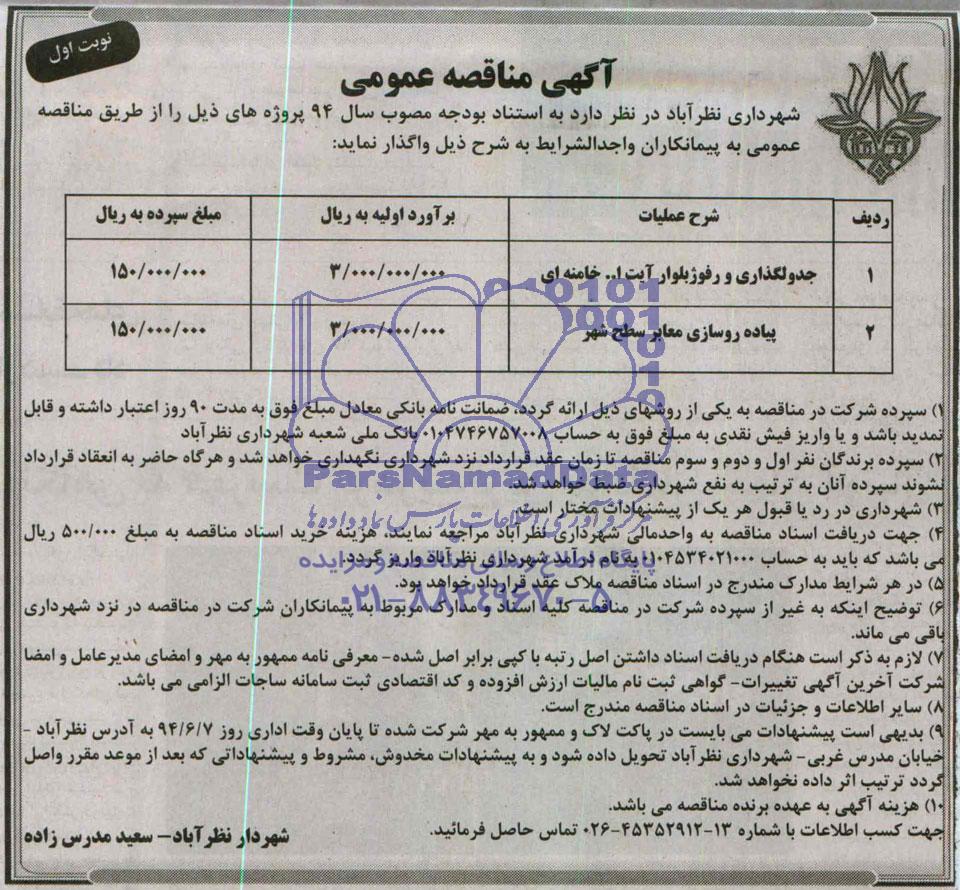 نوبت اول
آگهی مناقصه عمومی
شهرداری نظرآباد در نظر دارد به استناد بودجه مصوب سال ۹۴ پروژه های ذیل را از طریق مناقصه
عمومی به پیمانکاران واجدالشرایط به شرح ذیل واگذار نماید:
ردیف شرح عملیات برآورد اولیه به ریال مبلغ سپرده به ریال
۱ جدولگذاری و رفوژبلوار آیت ا.. خامنه ای ۳/۰۰۰/۰۰۰/۰۰۰ ۱۵۰/۰۰۰/۰۰۰
۲ پیاده روسازی معابر سطح شهر ۳/۰۰۰/۰۰۰/۰۰۰ ۱۵۰/۰۰۰/۰۰۰
۱) سپرده شرکت در مناقصه به یکی از روشهای ذیل ارائه گردد، ضمانت نامه بانکی معادل مبلغ فوق به مدت ۹۰ روز اعتبار داشته و قابل
تمدید باشد و یا واریز فیش نقدی به مبلغ فوق به حساب ۰۱۰۴۷۴۶۷۵۷۰۰۸ بانک ملی شعبه شهرداری نظرآباد
۲) سپرده برندگان نفر اول و دوم و سوم مناقصه تا زمان عقد قرارداد نزد شهرداری نگهداری خواهد شد و هرگاه حاضر به انعقاد قرارداد
نشوند سپرده آنان به ترتیب به نفع شهرداری ضبط خواهد شد.
۳) شهرداری در رد یا قبول هر یک از پیشنهادات مختار است.
۴) جهت دریافت اسناد مناقصه به واحدمالی شهرداری نظرآباد مراجعه نمایند، هزینه خرید اسناد مناقصه به مبلغ ۵۰۰/۰۰۰ ریال
می باشد که باید به حساب ۰۱۰۴۵۳۴۰۲۱۰۰۰ به نام درآمد شهرداری نظرآباد واریز گردد.
۵) در هر شرایط مدارک مندرج در اسناد مناقصه ملاک عقد قرارداد خواهد بود.
۶) توضیح اینکه به غیر از سپرده شرکت در مناقصه کلیه اسناد و مدارک مربوط به پیمانکاران شرکت در مناقصه در نزد شهرداری
باقی می ماند.
۷) لازم به ذکر است هنگام دریافت اسناد داشتن اصل رتبه با کپی برابر اصل شده- معرفی نامه ممهور به مهر و امضای مدیرعامل و امضا
شرکت آخرین آگهی تغییرات- گواهی ثبت نام مالیات ارزش افزوده و کد اقتصادی ثبت سامانه ساجات الزامی می باشد.
۸) سایر اطلاعات و جزئیات در اسناد مناقصه مندرج است.
۹) بدیهی است پیشنهادات می بایست در پاکت لاک و ممهور به مهر شرکت شده تا پایان وقت اداری روز ۹۴/۶/۷ به آدرس نظرآباد -
خیابان مدرس غربی- شهرداری نظرآباد تحویل داده شود و به پیشنهادات مخدوش، مشروط و پیشنهاداتی که بعد از موعد مقرر واصل
گردد ترتیب اثر داده نخواهد شد.
۱۰) هزینه آگهی به عهده برنده مناقصه می باشد.
جهت کسب اطلاعات با شماره ۱۳-۴۵۳۵۲۹۱۲-۰۲۶ تماس حاصل فرمائید.
شهردار نظرآباد- سعید مدرس زاده
ParsNamadData
مرکز فرآوری اطلاعات پارس نماد داده ها
پایگاه اطلاع رسانی مناقصه و مزایده
۰۲۱-۸۸۳۴۹۶۷۰-۵